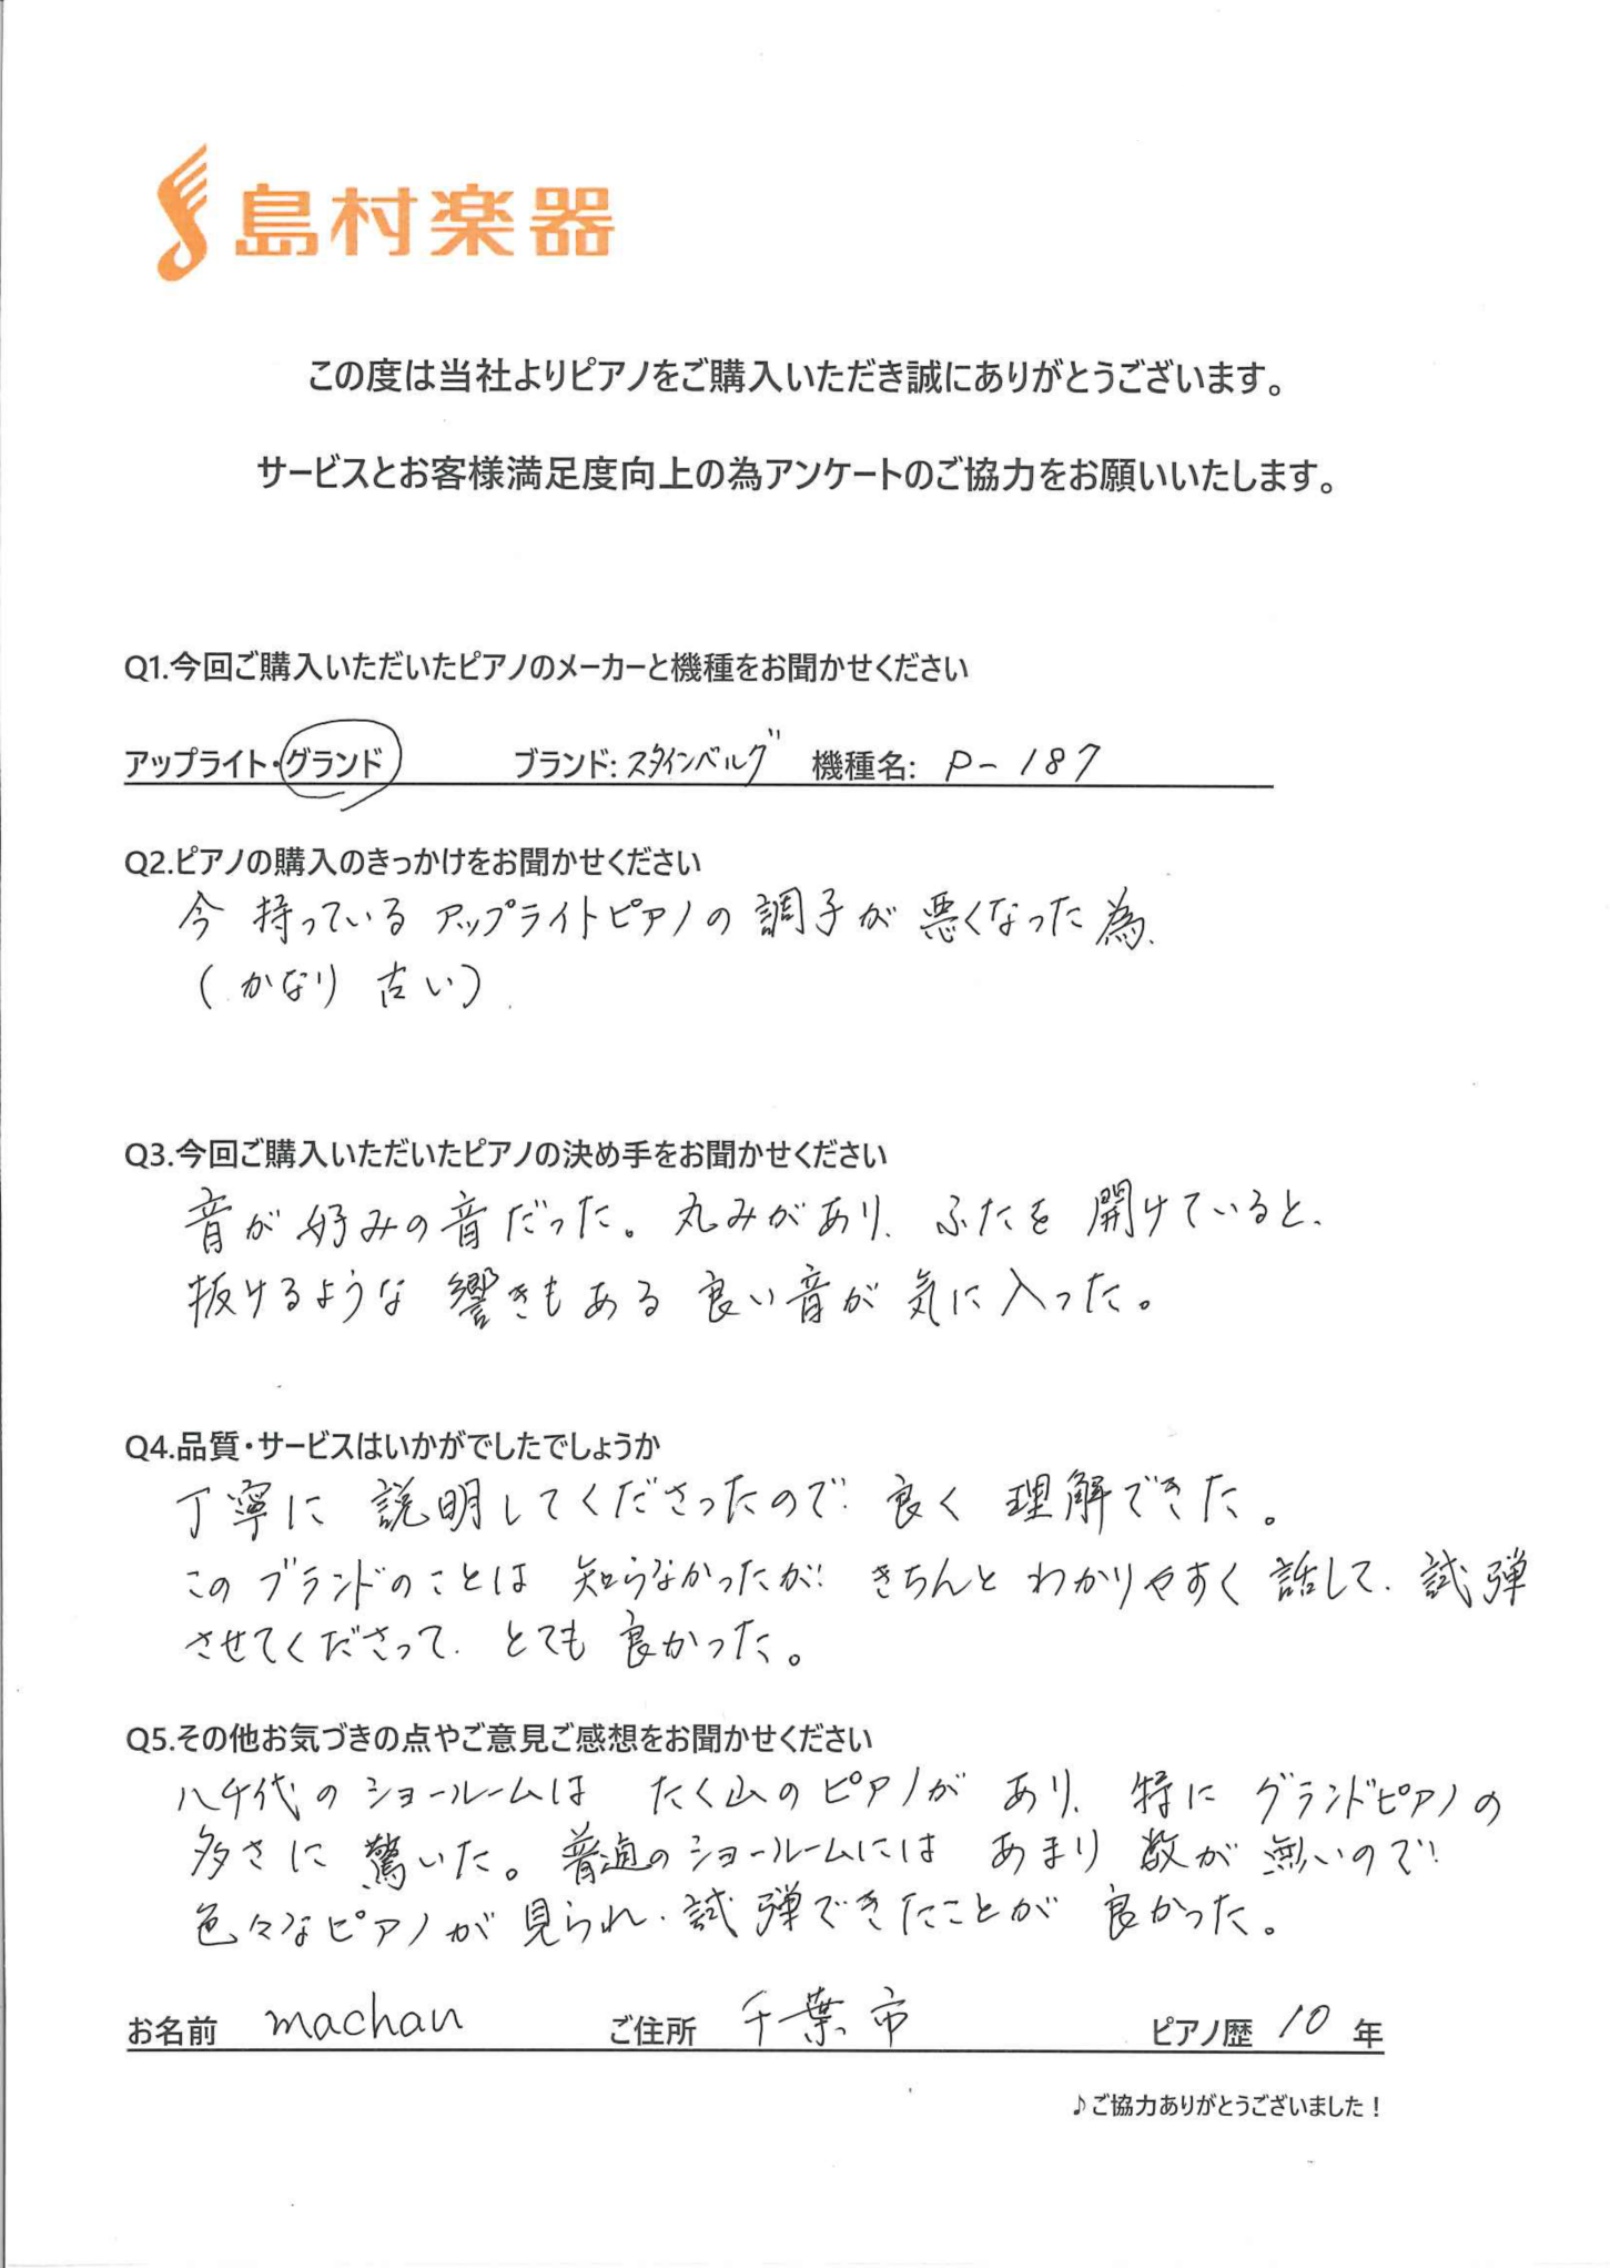 島村楽器
この度は当社よりピアノをご購入いただき誠にありがとうございます。
サービスとお客様満足度向上の為アンケートのご協力をお願いいたします。
Q1.今回ご購入いただいたピアノのメーカーと機種をお聞かせください
アップライト・グランド ブランド: スタインベルグ 機種名: P-187
Q2.ピアノの購入のきっかけをお聞かせください
今持っているアップライトピアノの調子が悪くなった為、
(かなり古い)
Q3.今回ご購入いただいたピアノの決め手をお聞かせください
音が好みの音だった。丸みがあり、ふたを開けていると、
抜けるような響きもある良い音が気に入った。
Q4.品質・サービスはいかがでしたでしょうか
丁寧に説明してくださったので、良く理解できた。
このブランドのことは知らなかったが、きちんとわかりやすく話して、試弾
させてくださって、とても良かった。
Q5.その他お気づきの点やご意見ご感想をお聞かせください
八千代のショールームは たく山のピアノが あり、特に グランドピアノの
多さに驚いた。普通のショールームには あまり数が無いので、
色々なピアノが見られ、試弾できたことが良かった。
お名前 machan ご住所 千葉市 ピアノ歴 10 年
♪ご協力ありがとうございました！